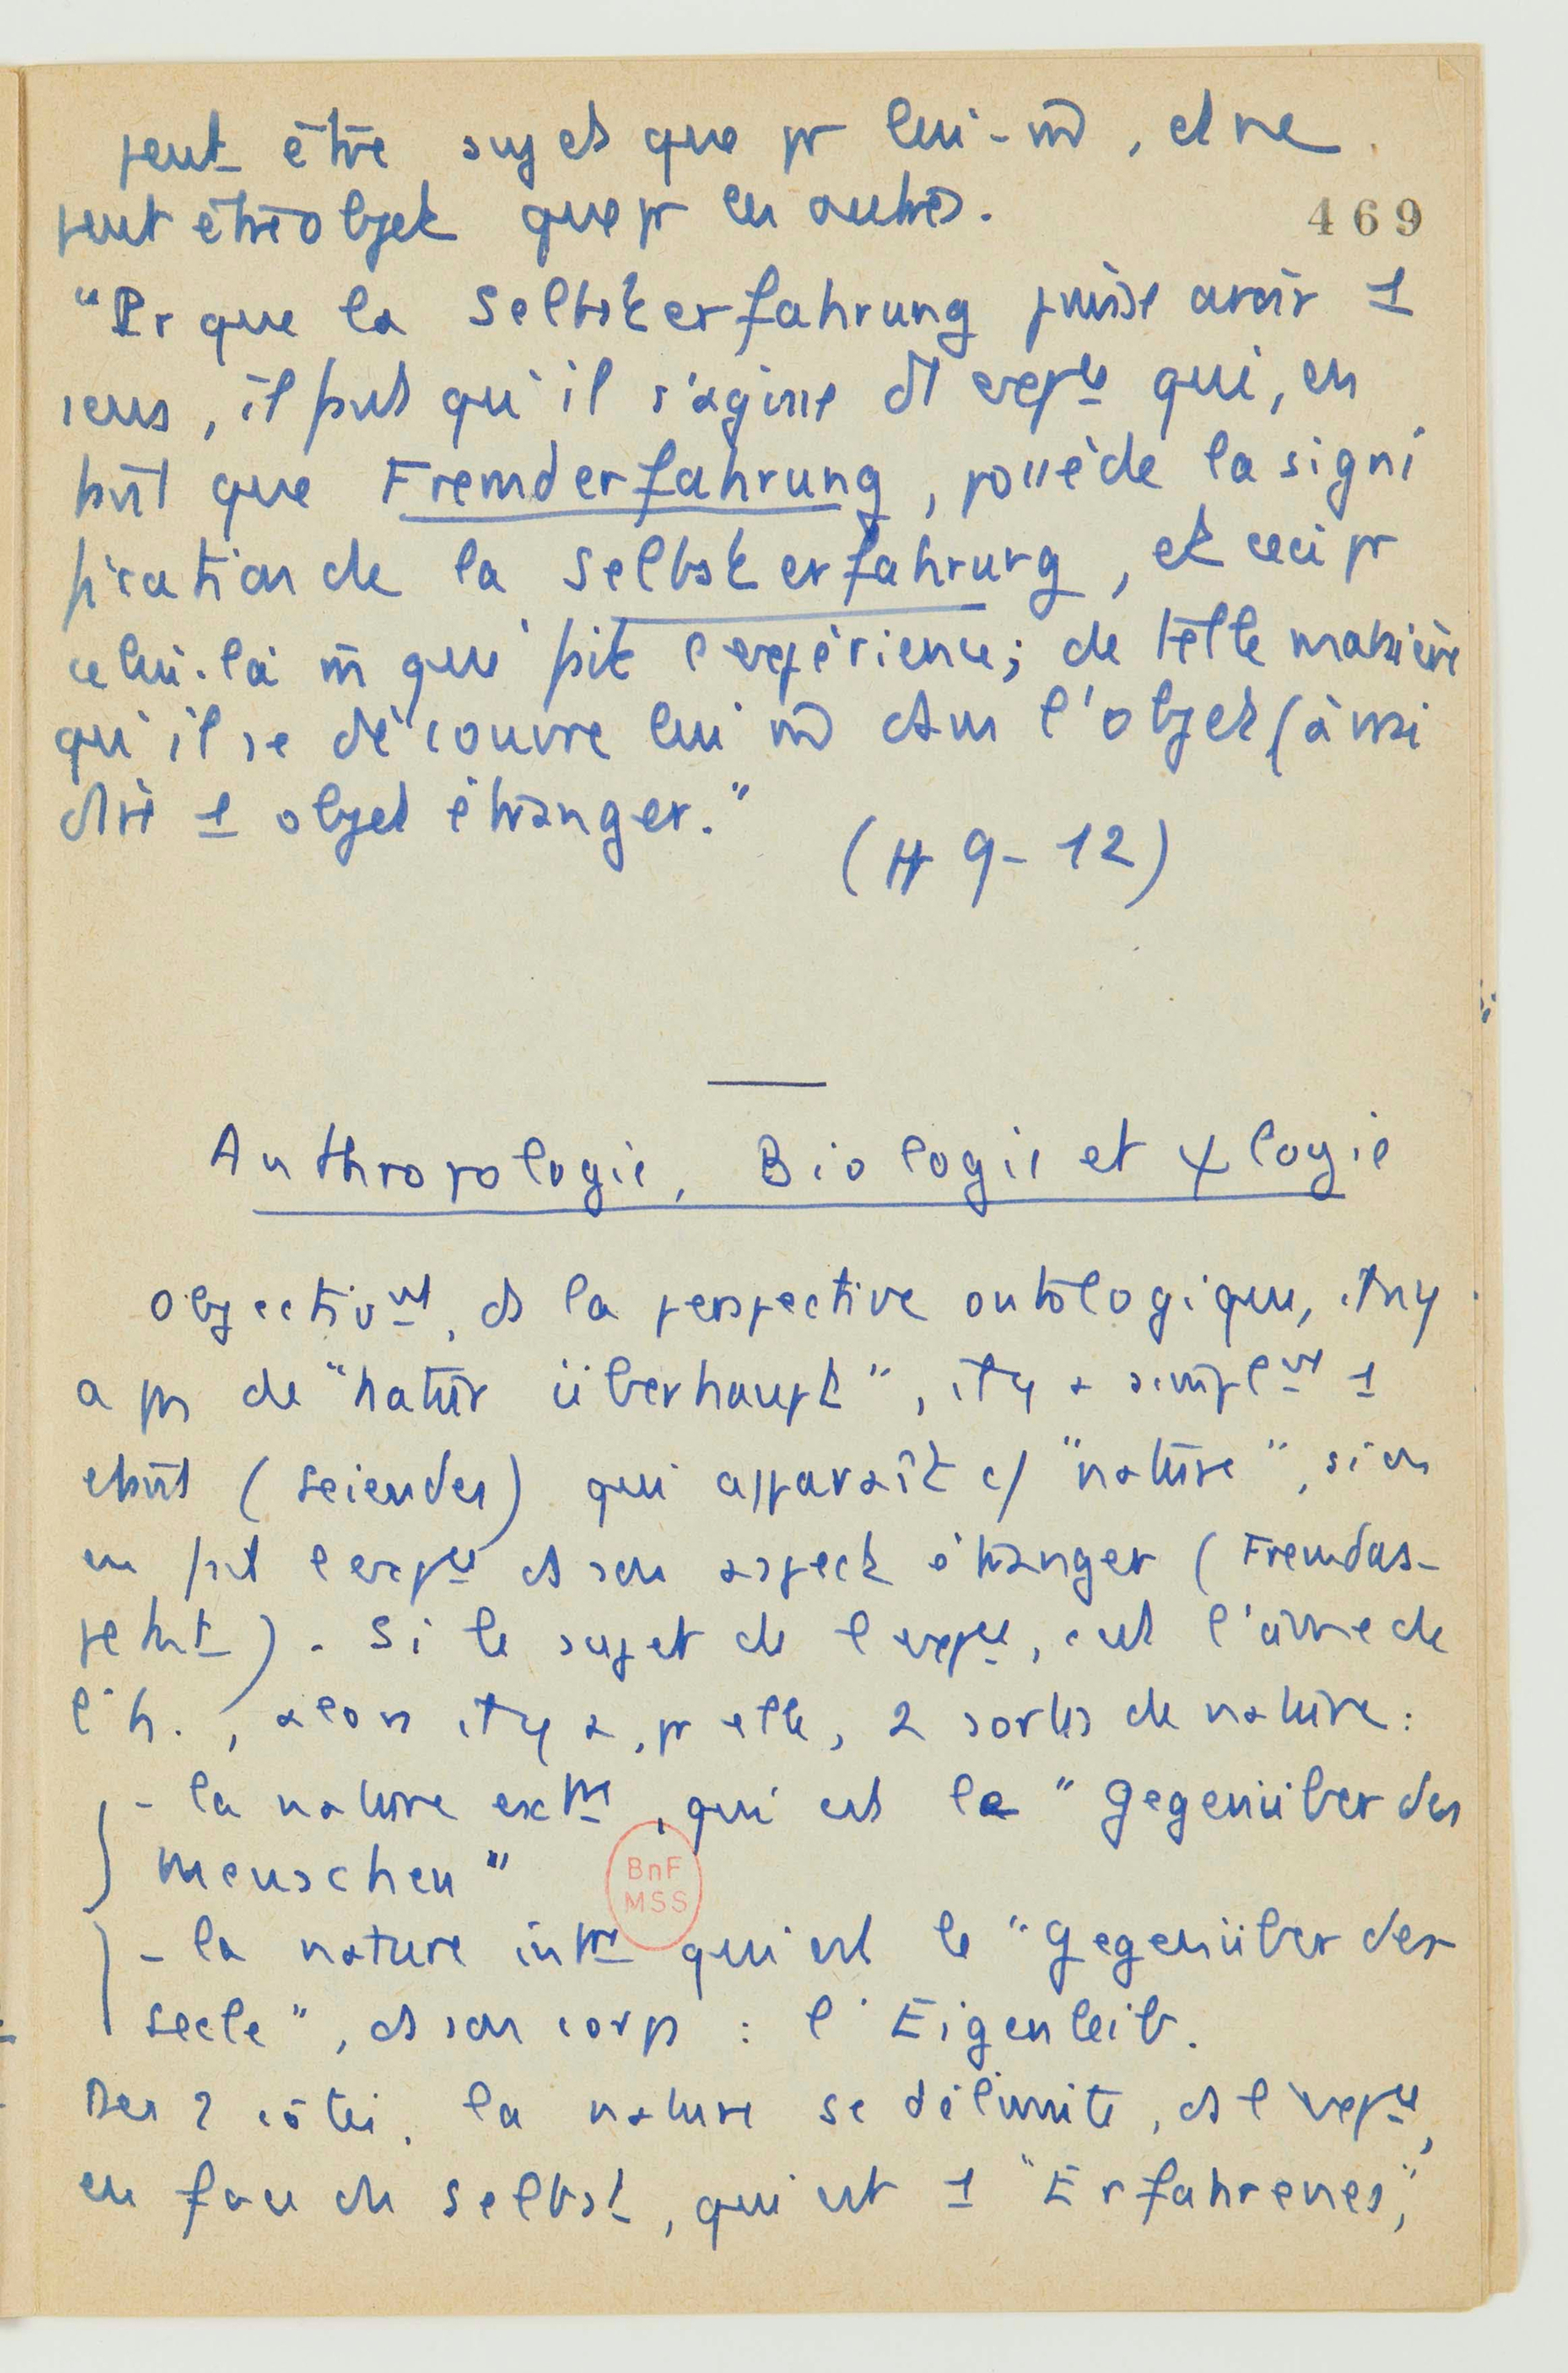 peut être sujet que pr lui-m̄, et ne
peut être objet que pr les autres.
469
"Pr que la Selbsterfahrung puisse avoir 1
sens, il faut qu'il s'agisse d'1 expce qui, en
tant que Fremderfahrung, possède la signi
fication de la Selbsterfahrung, et ceci pr
celui-là m̄ qui fait l'expérience; de telle manière
qu'il se découvre lui m̄ dans l'objet (ainsi
dire 1 objet étranger."
(H 9-12)
Anthropologie, Biologie et ψlogie
Objectivmt, ds la perspective ontologique, il n'y
a pas de "Natur überhaupt", il y a simplmt 1
étant (Seiendes) qui apparaît c/ "nature", si on
en fait l'expce ds son aspect étranger (Fremdas-
pekt). Si le sujet de l'expce, c'est l'âme de
l'h., alors il y a, pr elle, 2 sortes de nature:
- la nature extre, qui est le "Gegenüber des
Menschen"
BnF
MSS
- la nature intre qui est le "Gegenüber der
Seele", ds son corps : l'Eigenleib.
Des 2 côtés, la nature se délimite, ds l'expce,
en face du Selbst, qui est 1 "Erfahrenes,"